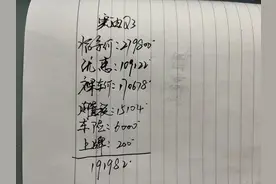 奥迪Q3
指导价:279800
优惠:109122
裸车价:170678
购置税:15104
车险:6000
上牌:200
191982